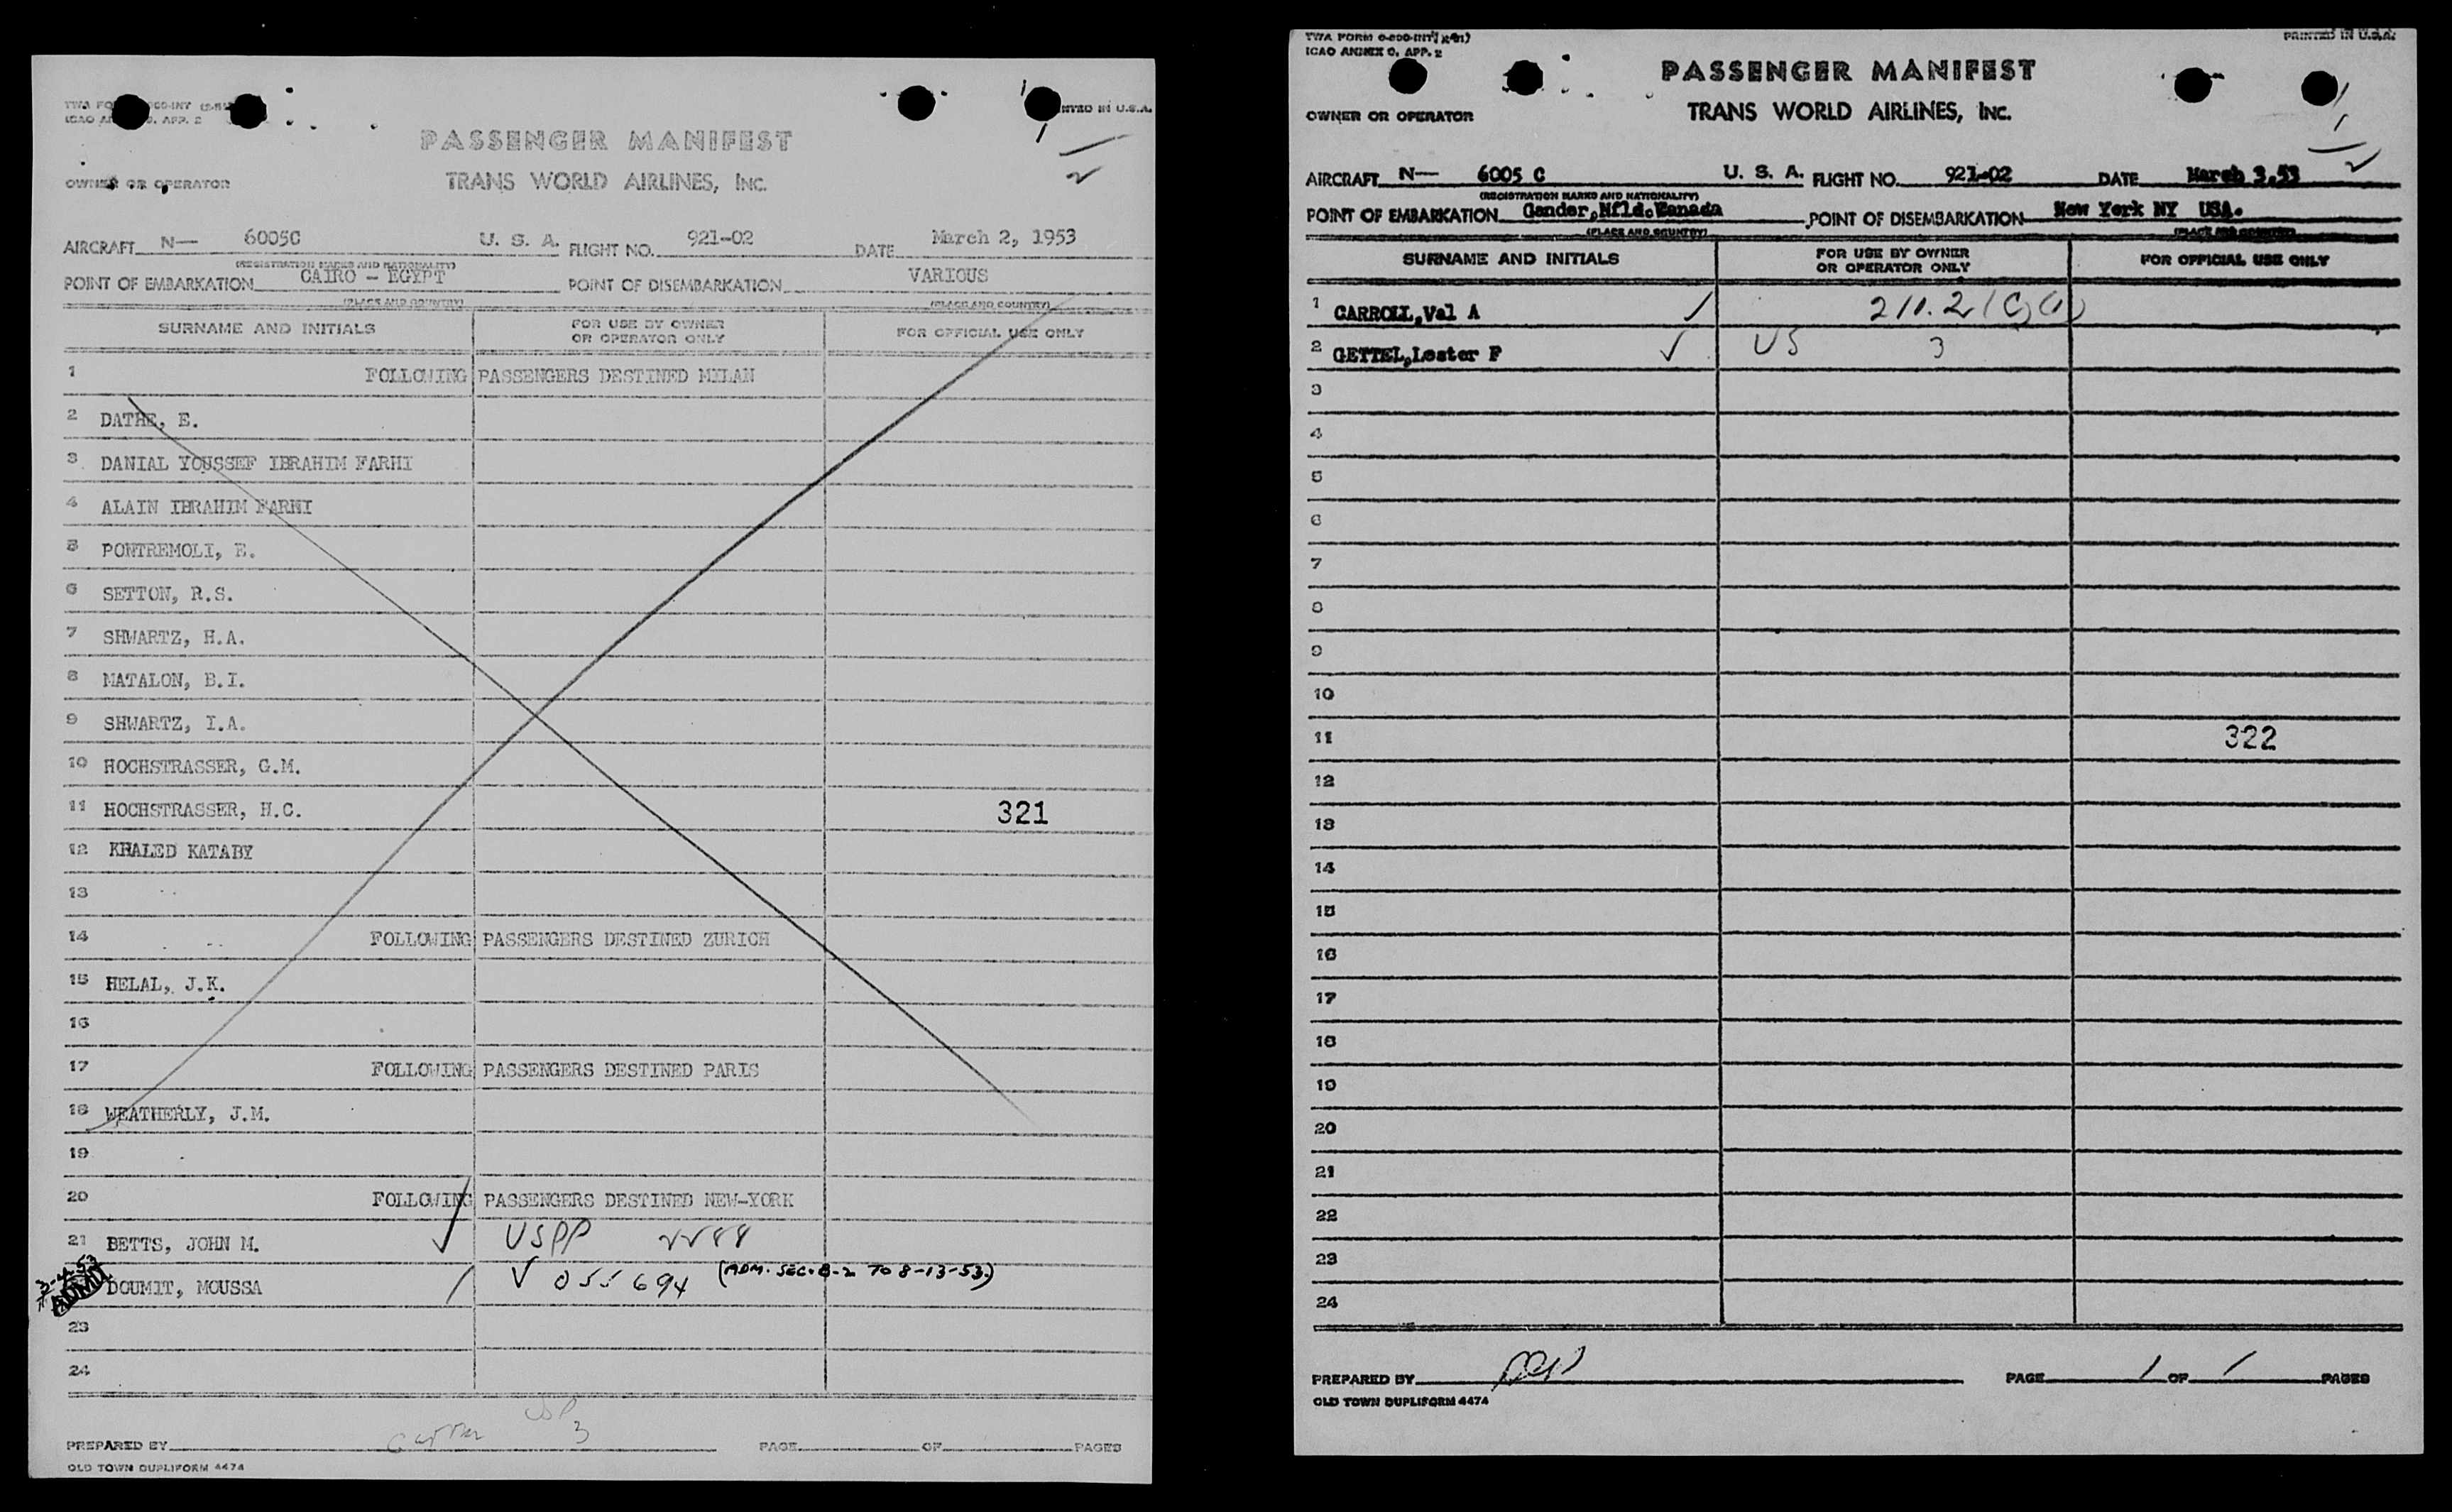 PASSENGER MANIFEST
OWNER OR OPERATOR TRANS WORLD AIRLINES, INC.
AIRCRAFT N— 6005C U. S. A. FLIGHT NO. 921-02 DATE March 2, 1953
(REGISTRATION MARKS AND NATIONALITY)
POINT OF EMBARKATION CAIRO - EGYPT POINT OF DISEMBARKATION VARIOUS
(PLACE AND COUNTRY) (PLACE AND COUNTRY)
SURNAME AND INITIALS FOR USE BY OWNER OR OPERATOR ONLY FOR OFFICIAL USE ONLY
1 FOLLOWING PASSENGERS DESTINED MILAN
2 DATHE, E.
3 DANIAL YOUSSEF IBRAHIM FARHI
4 ALAIN IBRAHIM FARHI
5 PONTREMOLI, E.
6 SETTON, R.S.
7 SHWARTZ, H.A.
8 MATALON, B.I.
9 SHWARTZ, I.A.
10 HOCHSTRASSER, G.M.
11 HOCHSTRASSER, H.C. 321
12 KHALED KATABY
13
14 FOLLOWING PASSENGERS DESTINED ZURICH
15 HELAL, J.K.
16
17 FOLLOWING PASSENGERS DESTINED PARIS
18 WEATHERLY, J.M.
19
20 FOLLOWING PASSENGERS DESTINED NEW-YORK
21 BETTS, JOHN M. USPP
DOUMIT, MOUSSA V 055694 (ADM. SEC. B-2 TO 8-13-53.)
23
24
PREPARED BY PAGE OF PAGES
OLD TOWN DUPLIFORM 4474
ICAO ANNEX 9. APP. 2 PRINTED IN U.S.A.
PASSENGER MANIFEST
OWNER OR OPERATOR TRANS WORLD AIRLINES, INC.
AIRCRAFT N— 6005 C U. S. A. FLIGHT NO. 921-02 DATE March 3,53
(REGISTRATION MARKS AND NATIONALITY)
POINT OF EMBARKATION Gander,Nfld. POINT OF DISEMBARKATION New York NY USA.
(PLACE AND COUNTRY) (PLACE AND COUNTRY)
SURNAME AND INITIALS FOR USE BY OWNER OR OPERATOR ONLY FOR OFFICIAL USE ONLY
1 CARROLL,Val A
2 GETTEL,Lester F US 3
3
4
5
6
7
8
9
10
11 322
12
13
14
15
16
17
18
19
20
21
22
23
24
PREPARED BY PAGE 1 OF 1 PAGES
OLD TOWN DUPLIFORM 4474